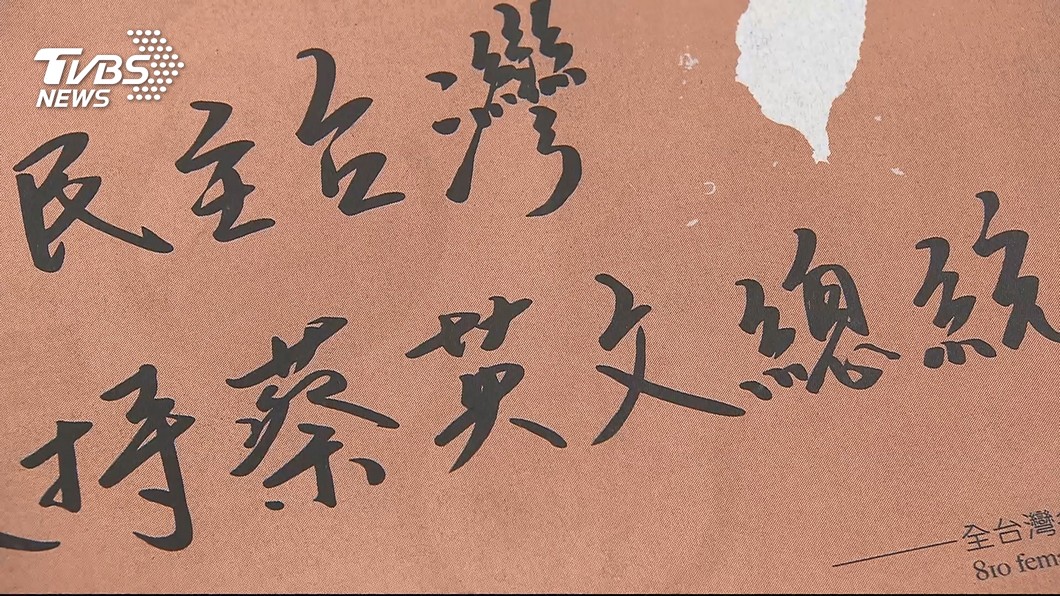 TVBS
NEWS
民主台灣
持蔡英文總統
全台灣
810 fem